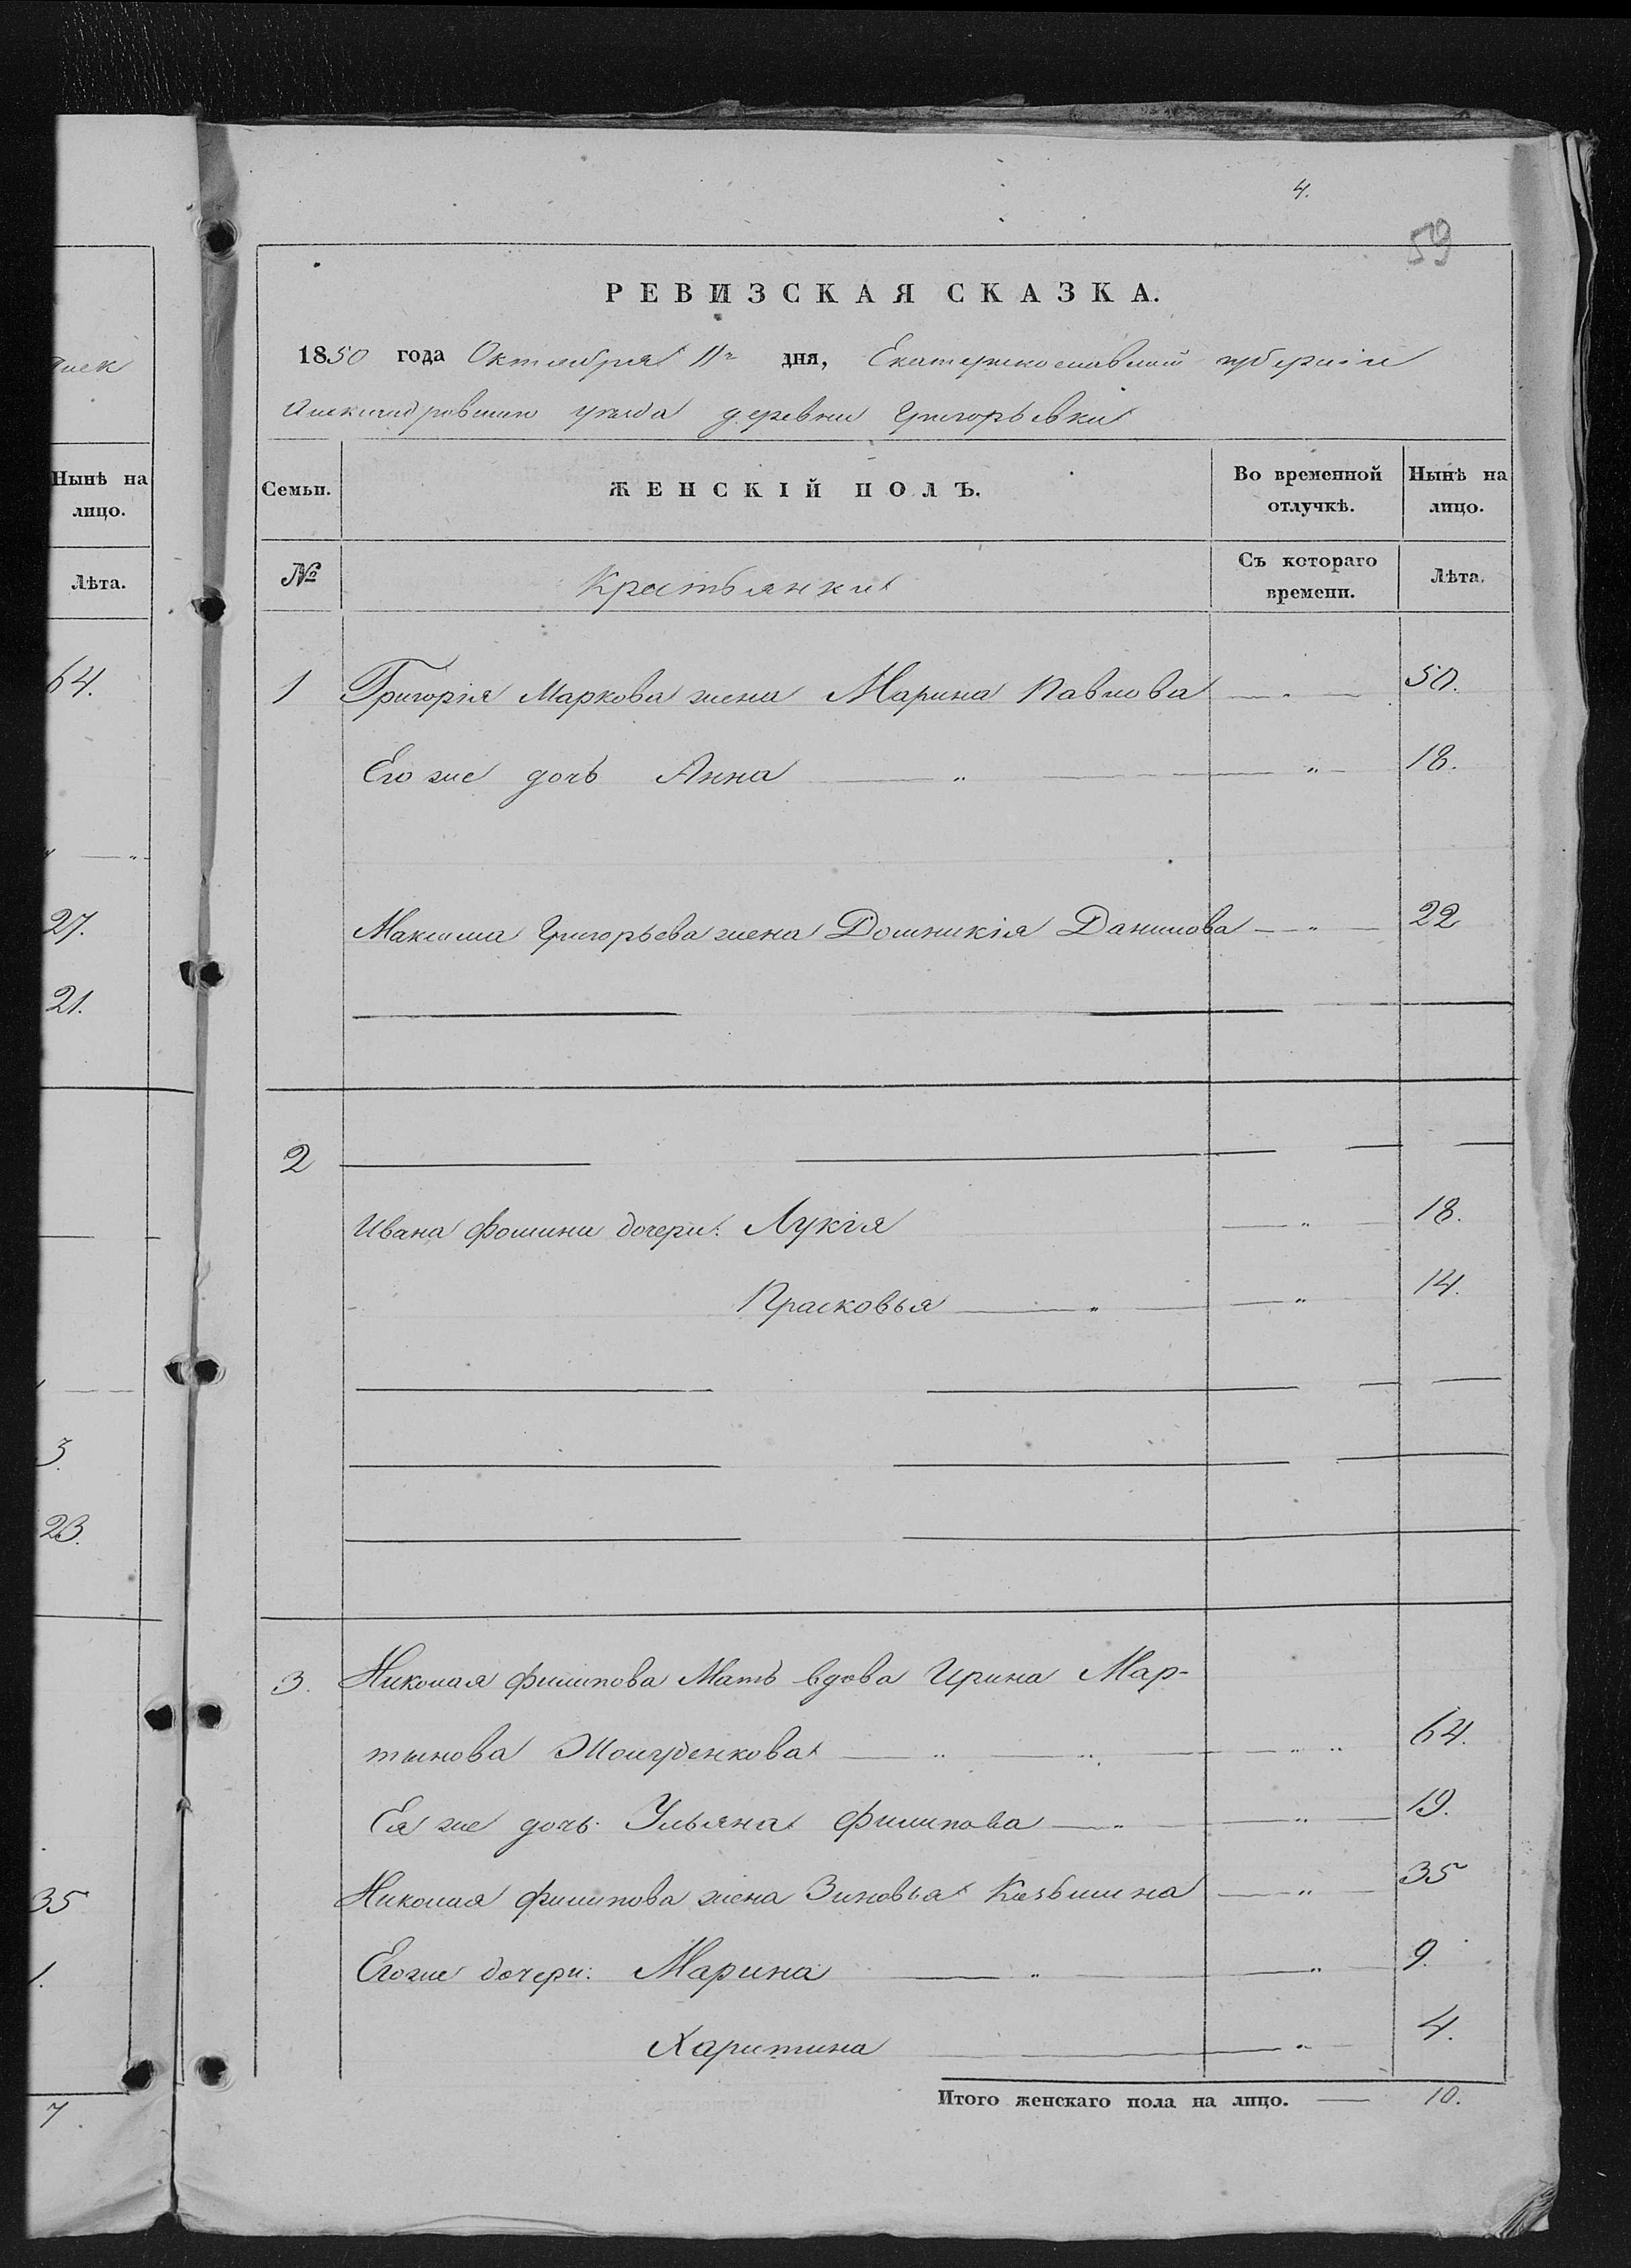 4.
59
РЕВИЗСКАЯ СКАЗКА.
1850 года Октября 11го дня, Екатеринославской губернiи
Александровскаго уезда деревни Григорьевки
Семьи.
ЖЕНСКIЙ ПОЛЪ.
Во временной отлучкѣ.
Нынѣ на лицо.
№
Крестьянки
Съ котораго времени.
Лѣта.
1 Григорiя Маркова жена Марина Павлова — " — 50.
Его же дочь Анна — " — — " — 18.
Максима Григорьева жена Домникiя Данилова — " — 22
2
Ивана Фомина дочери: Лукiя — " — 18.
Прасковья — " — — " — 14.
3. Николая Филипова Мать вдова Ирина Мар-
тынова — " — " — " " 64.
Ея же дочь Ульяна Филипова — " — — " — 19.
Николая Филипова жена Зиновья Козьмина — " — 35
Его же дочери: Марина — " — — " — 9.
Харитина — — " — 4.
Итого женскаго пола на лицо. — 10.
Нынѣ на
лицо.
Лѣта.
64.
27.
21.
3.
23.
35
1.
7.